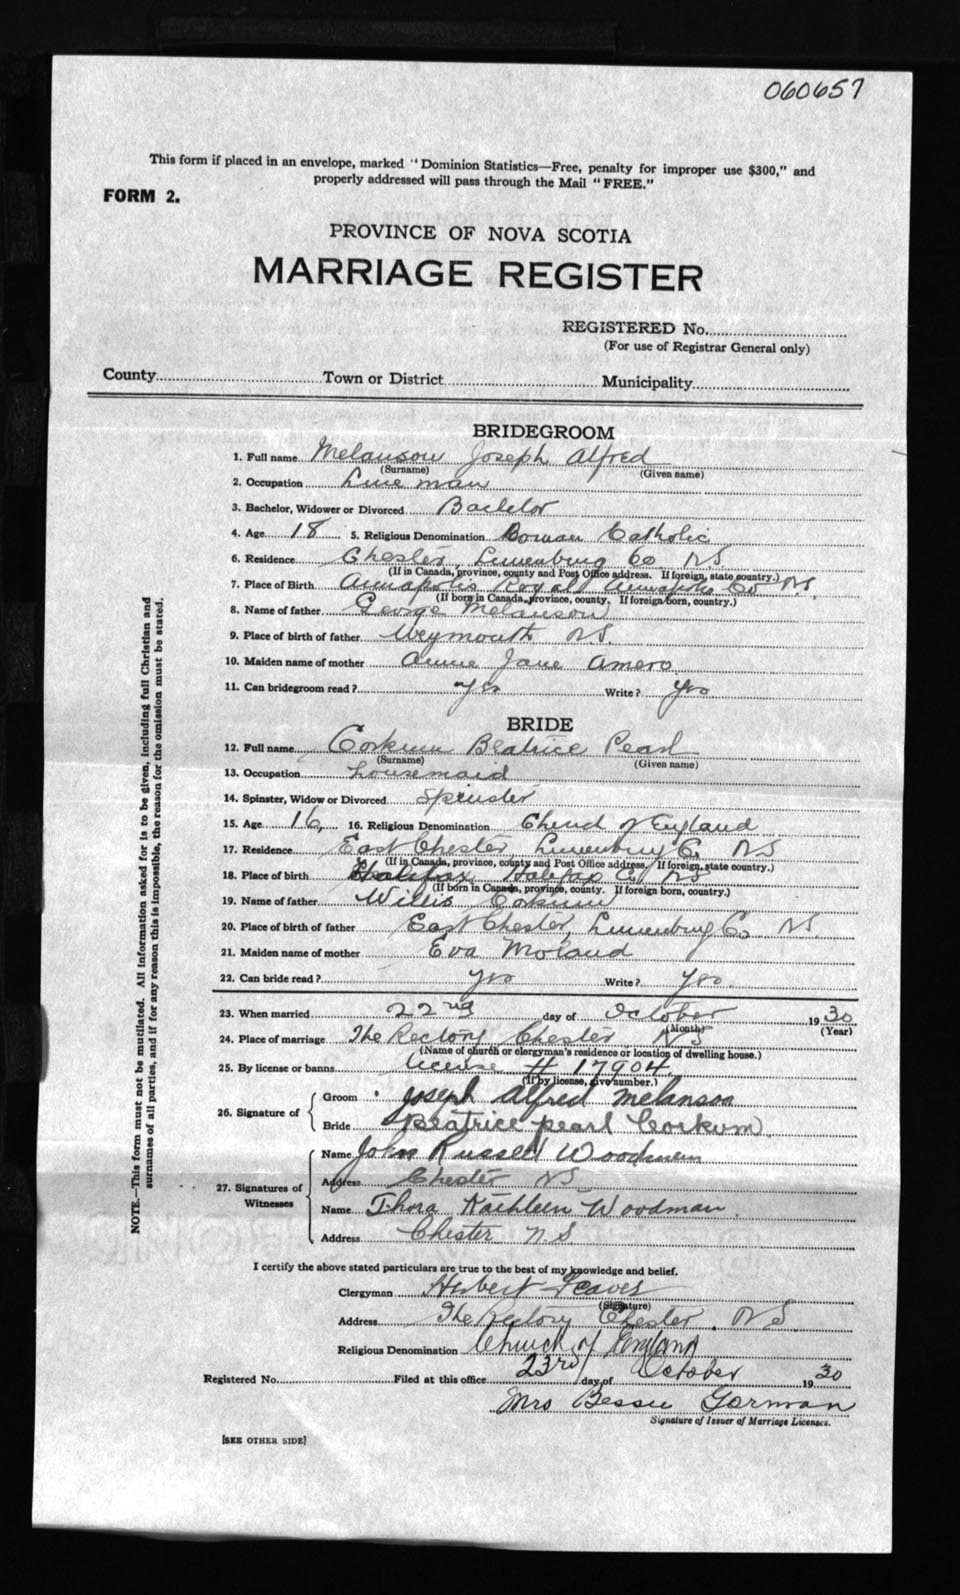 060657
This form if placed in an envelope, marked "Dominion Statistics—Free, penalty for improper use $300," and
properly addressed will pass through the Mail "FREE."
FORM 2.
PROVINCE OF NOVA SCOTIA
MARRIAGE REGISTER
REGISTERED No.
(For use of Registrar General only)
County Town or District Municipality
BRIDEGROOM
1. Full name Melanson Joseph Alfred
(Surname) (Given name)
2. Occupation Line man
3. Bachelor, Widower or Divorced Bachelor
4. Age 18 5. Religious Denomination Roman Catholic
6. Residence Chester, Lunenburg Co N.S.
(If in Canada, province, county and Post Office address. If foreign, state country.)
7. Place of Birth Annapolis Royal Annapolis Co N.S.
(If born in Canada, province, county. If foreign born, country.)
8. Name of father George Melanson
9. Place of birth of father Weymouth N.S.
10. Maiden name of mother Annie Jane Amero
11. Can bridegroom read? Yes Write? Yes
BRIDE
12. Full name Corkum Beatrice Pearl
(Surname) (Given name)
13. Occupation housemaid
14. Spinster, Widow or Divorced Spinster
15. Age 16, 16. Religious Denomination Church of England
17. Residence East Chester Lunenburg Co N.S
(If in Canada, province, county and Post Office address. If foreign, state country.)
18. Place of birth Halifax Halifax Co N.S
(If born in Canada, province, county. If foreign born, country.)
19. Name of father Willis Corkum
20. Place of birth of father East Chester, Lunenburg Co N.S.
21. Maiden name of mother Eva Moland
22. Can bride read? Yes Write? Yes.
23. When married 22nd day of October 1930
(Month) (Year)
24. Place of marriage The Rectory Chester NS
(Name of church or clergyman's residence or location of dwelling house.)
25. By license or banns License # 17904.
(If by license, give number.)
26. Signature of
Groom Joseph Alfred Melanson
Bride Beatrice pearl Corkum
27. Signatures of Witnesses
Name John Russell Woodman
Address Chester N.S
Name Thora Kathleen Woodman.
Address Chester N.S
I certify the above stated particulars are true to the best of my knowledge and belief.
Clergyman Herbert
(Signature)
Address The Rectory Chester. N.S.
Religious Denomination Church of England
Registered No. Filed at this office 23rd day of October 1930
Mrs Bessie Gorman
Signature of Issuer of Marriage Licenses.
[SEE OTHER SIDE]
NOTE.—This form must not be mutilated. All information asked for is to be given, including full Christian and
surnames of all parties, and if for any reason this is impossible, the reason for the omission must be stated.